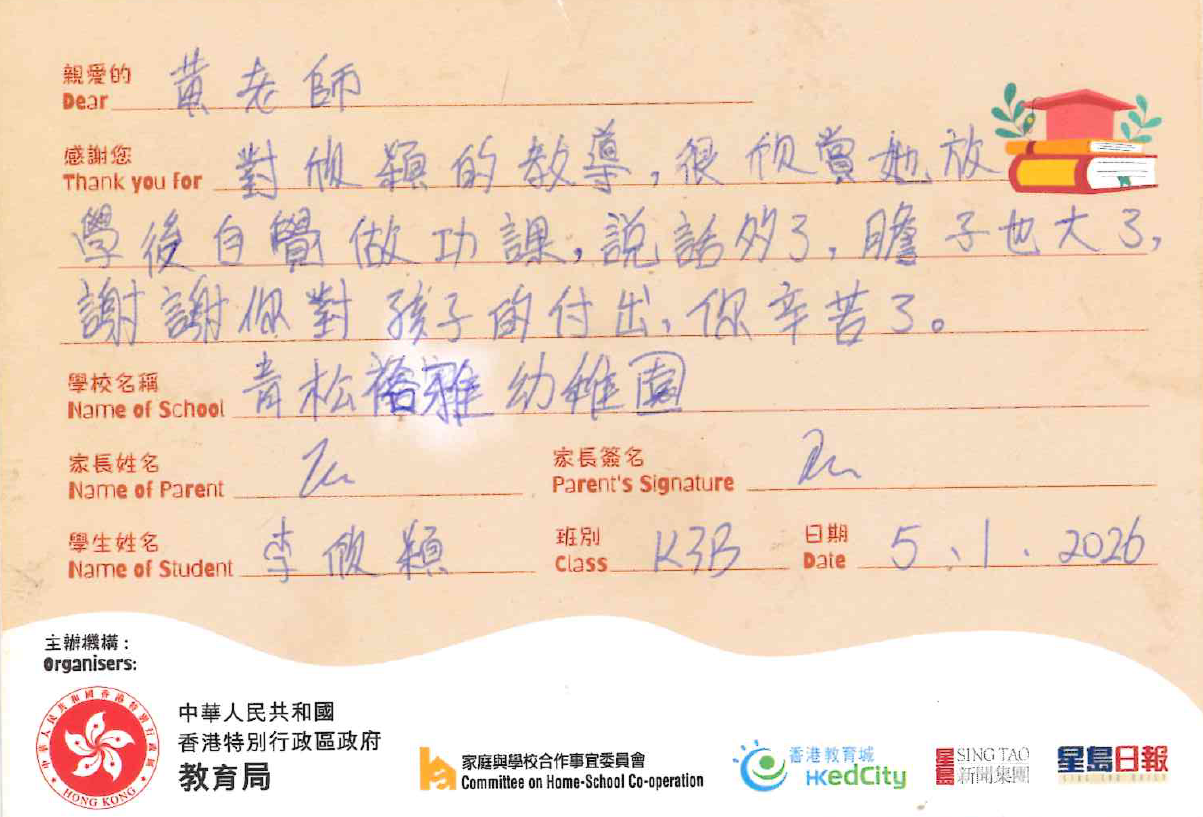 親愛的 黃老師
Dear
感謝您 對欣穎的教導,很欣賞她放
Thank you for
學後自覺做功課,説話多了,膽子也大了,
謝謝你對孩子的付出,你辛苦了。
學校名稱 青松雅幼稚園
Name of School
家長姓名 家長簽名
Name of Parent Parent's Signature
學生姓名 李欣穎 班別 K3B 日期 5、1.2026
Name of Student Class Date
主辦機構:
Organisers:
中華人民共和國香港特別行政區
HONG KONG
中華人民共和國
香港特別行政區政府
教育局
家庭與學校合作事宜委員會
Committee on Home-School Co-operation
香港教育城
HKedCity
星島 SING TAO
新聞集團
星島日報